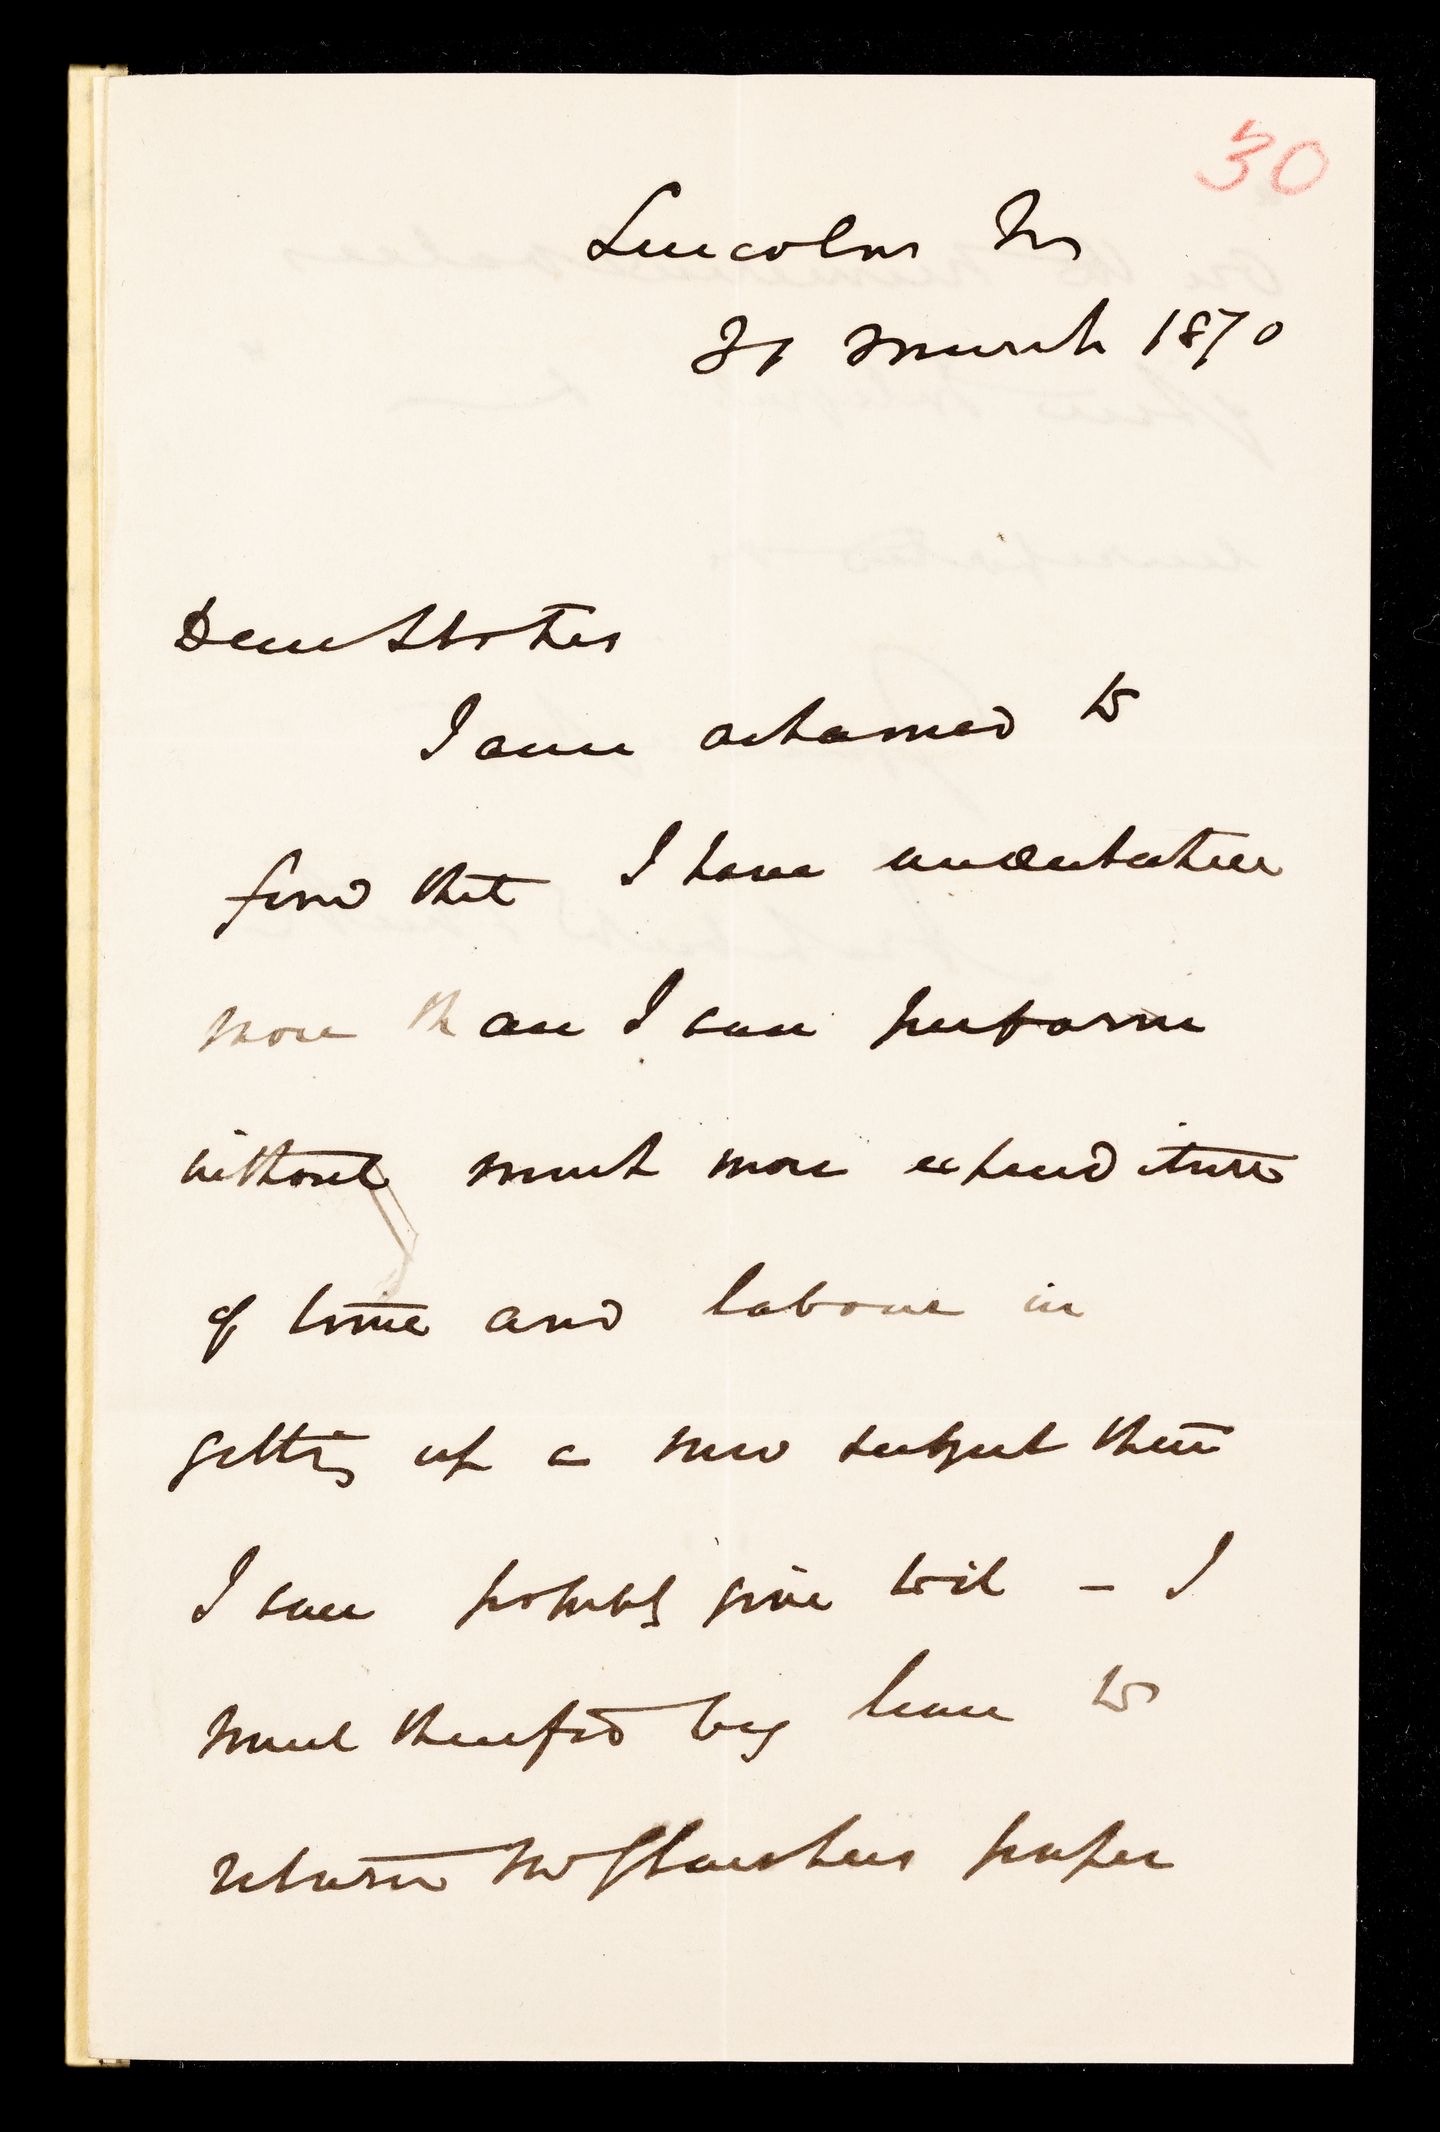 30
Lincolns In
31 March 1870
Dear Stokes
I am ashamed to
find that I have undertaken
more than I can perform
without much more expenditure
of time and labour in
getting up a new subject than
I can possibly give to it – I
must therefore beg leave to
return Mr Glaishers paper